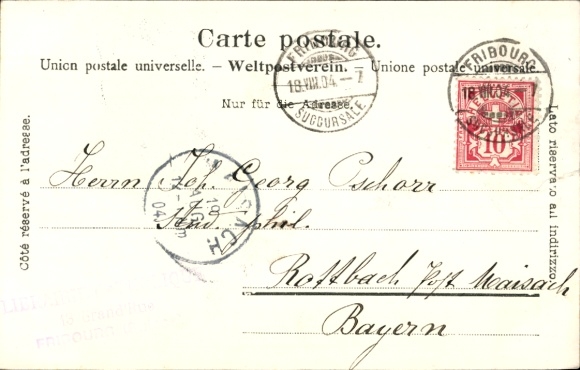 Carte postale.
Union postale universelle. – Weltpostverein. – Unione postale universale.
Nur für die Adresse.
FRIBOURG
18.VIII.04.–7
SUCCURSALE
FRIBOURG
18.VIII.04.
10
Côté réservé à l'adresse.
Lato riservato all indirizzo.
Herrn Joh. Georg Pschorr
stud. phil.
Rottbach Post Maisach
Bayern
19
AUG
04
FRIBOURG